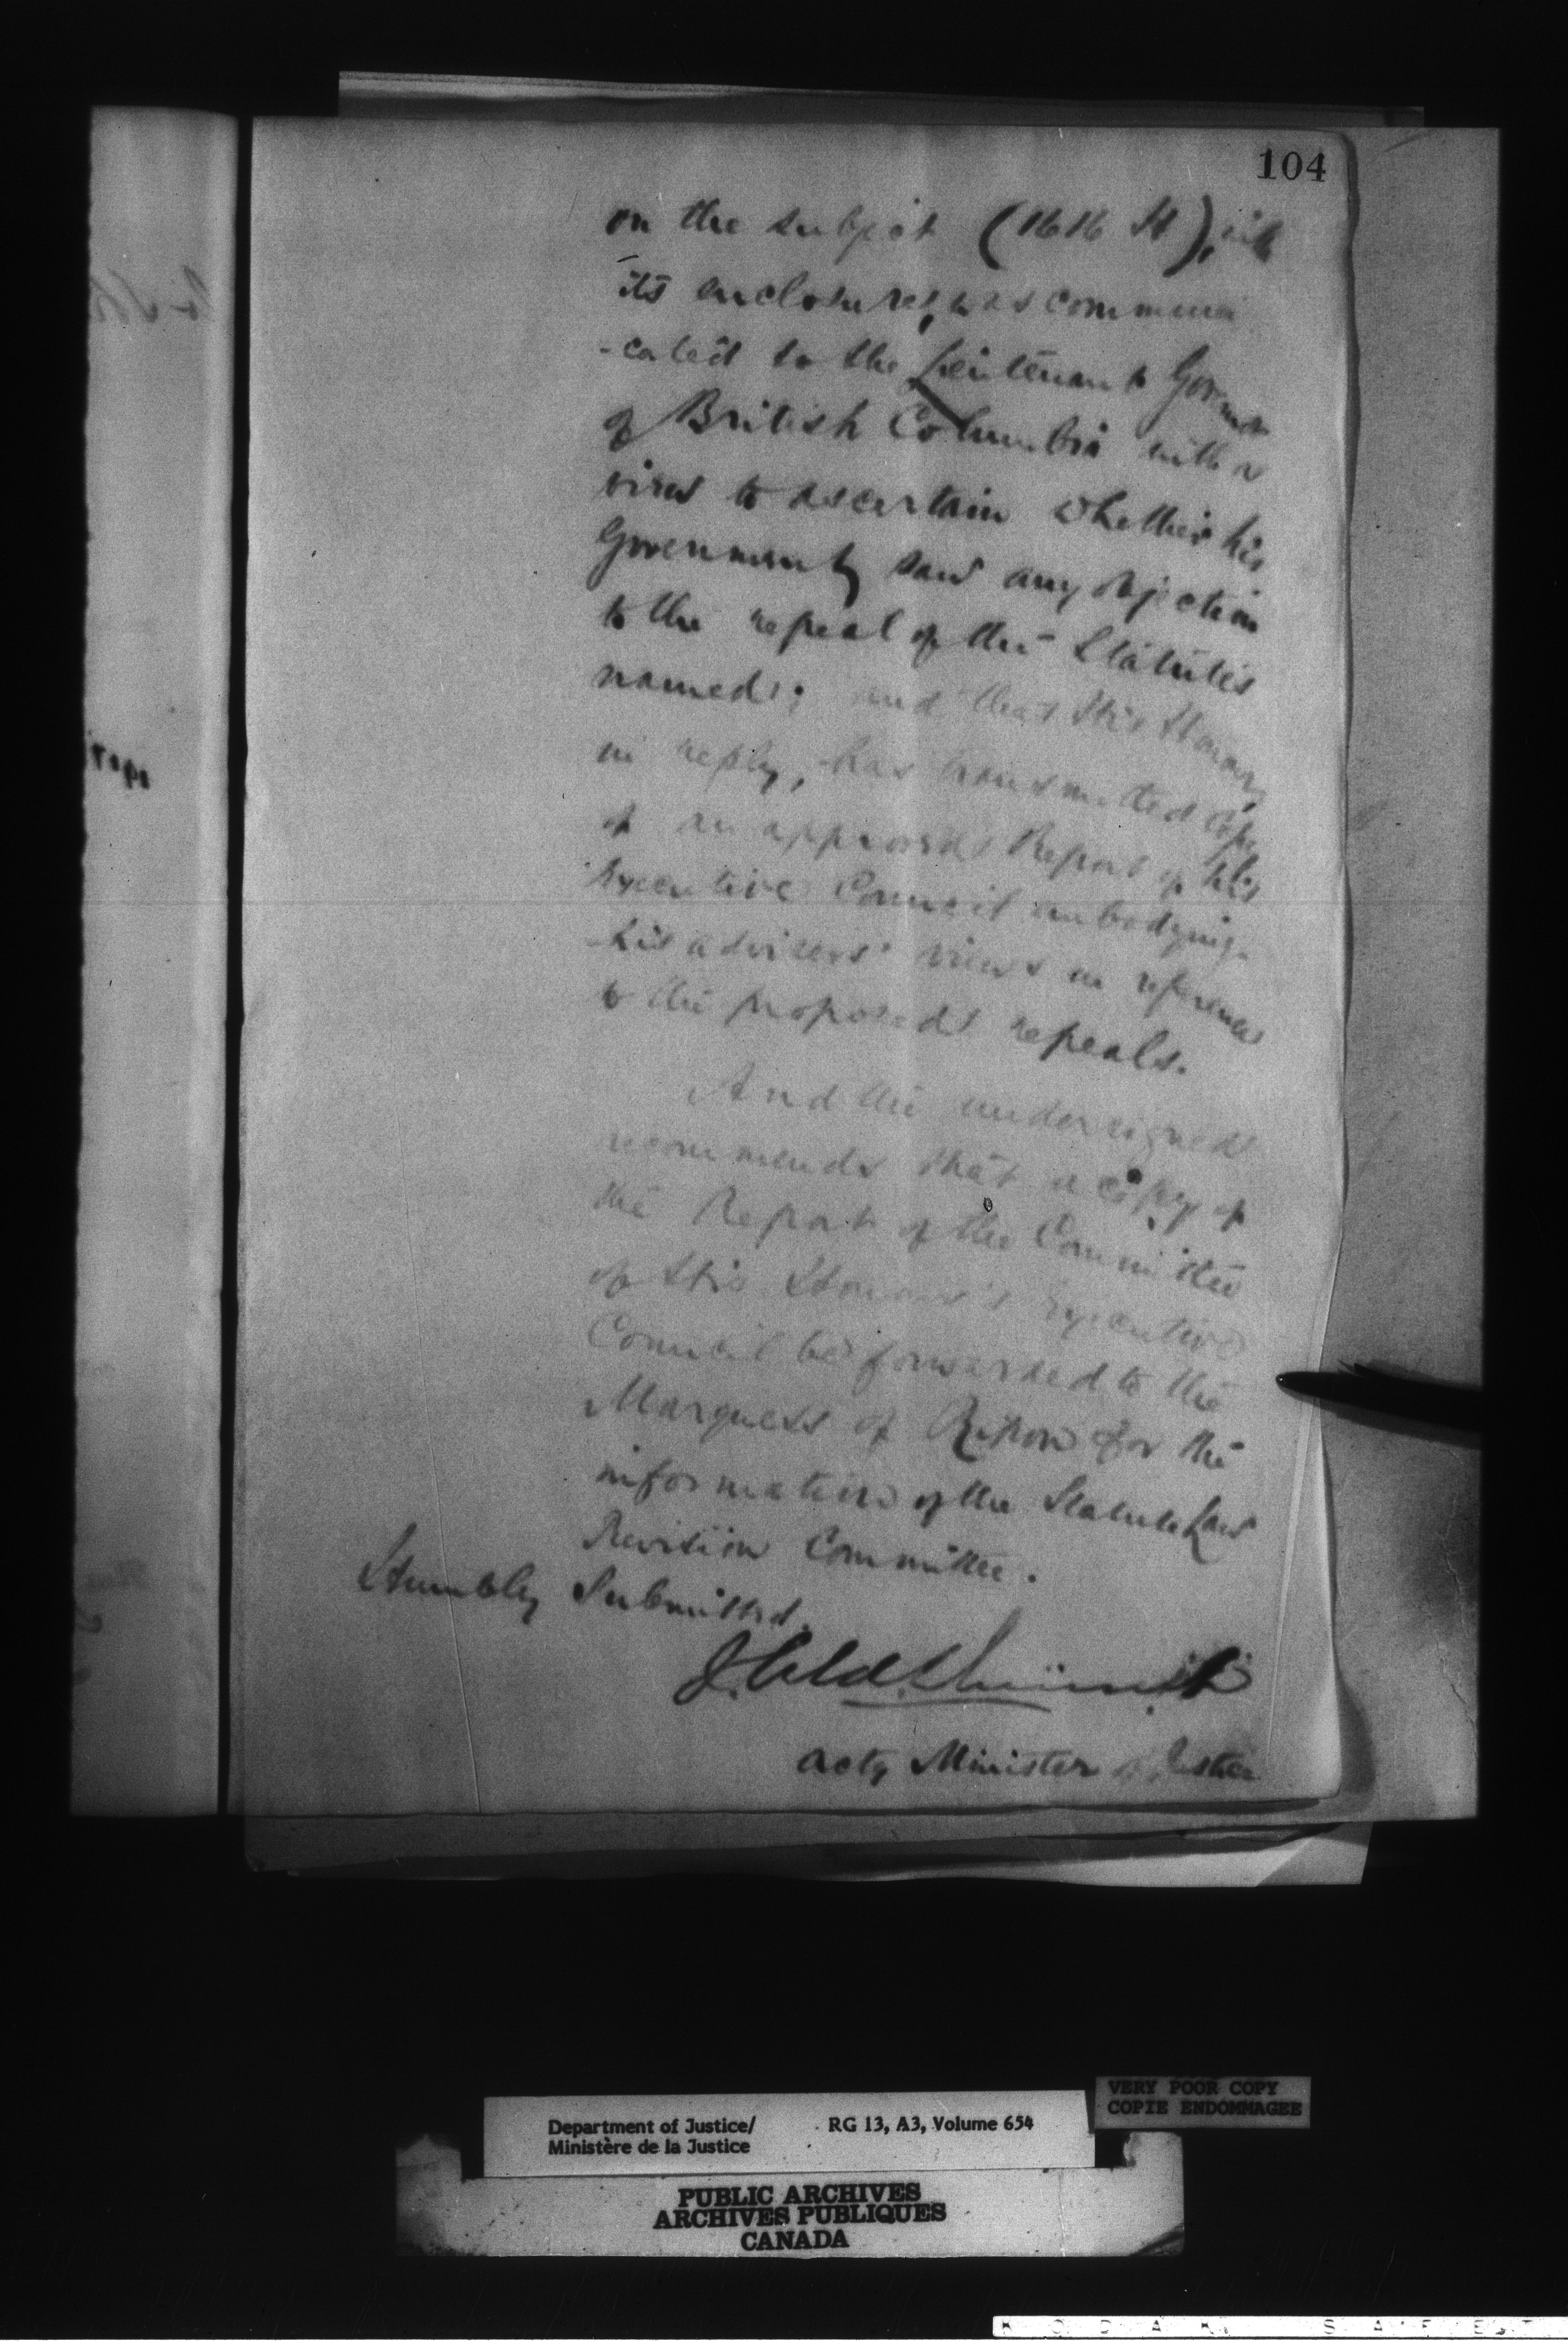 104
on the subject (1616 H), with
its enclosures, was communi
-cated to the Lieutenant Governor
of British Columbia with a
view to ascertain whether his
Government saw any objection
to the repeal of the Statutes
named; and that His Honour,
in reply, has transmitted copy
of an approved Report of his
Executive Council embodying
his advisers' views in reference
to the proposed repeals.
And the undersigned
recommends that a copy of
the Report of the Committee
of His Honour's Executive
Council be forwarded to the
Marquess of Ripon for the
information of the Statute Law
Revision Committee.
Humbly Submitted.
Actg Minister of Justice
VERY POOR COPY
COPIE ENDOMMAGEE
Department of Justice/ RG 13, A3, Volume 654
Ministère de la Justice
PUBLIC ARCHIVES
ARCHIVES PUBLIQUES
CANADA